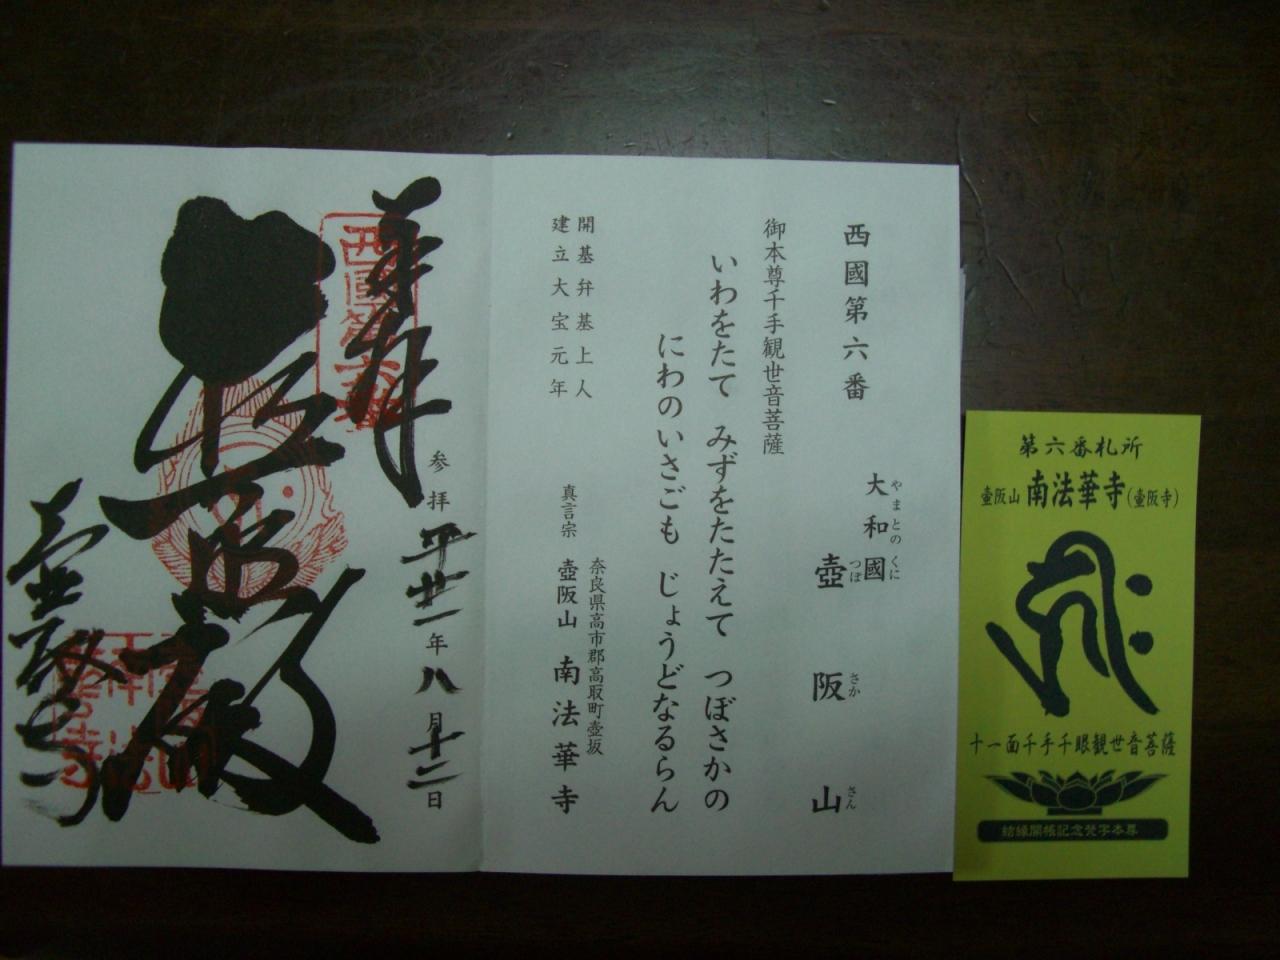 西國第六番
大和國
やまとのくに
壺阪山
つぼさかさん
御本尊千手観世音菩薩
いわをたて みずをたたえて つぼさかの
にわのいさごも じょうどなるらん
開基弁基上人
建立大宝元年
奈良県高市郡高取町壺坂
真言宗 壺阪山 南法華寺
参拝 平廿一年八月十二日
奉拝
西國第六番
普照殿
壺阪寺
第六番札所
壺阪山 南法華寺(壺阪寺)
十一面千手千眼観世音菩薩
結縁開帳記念梵字本尊